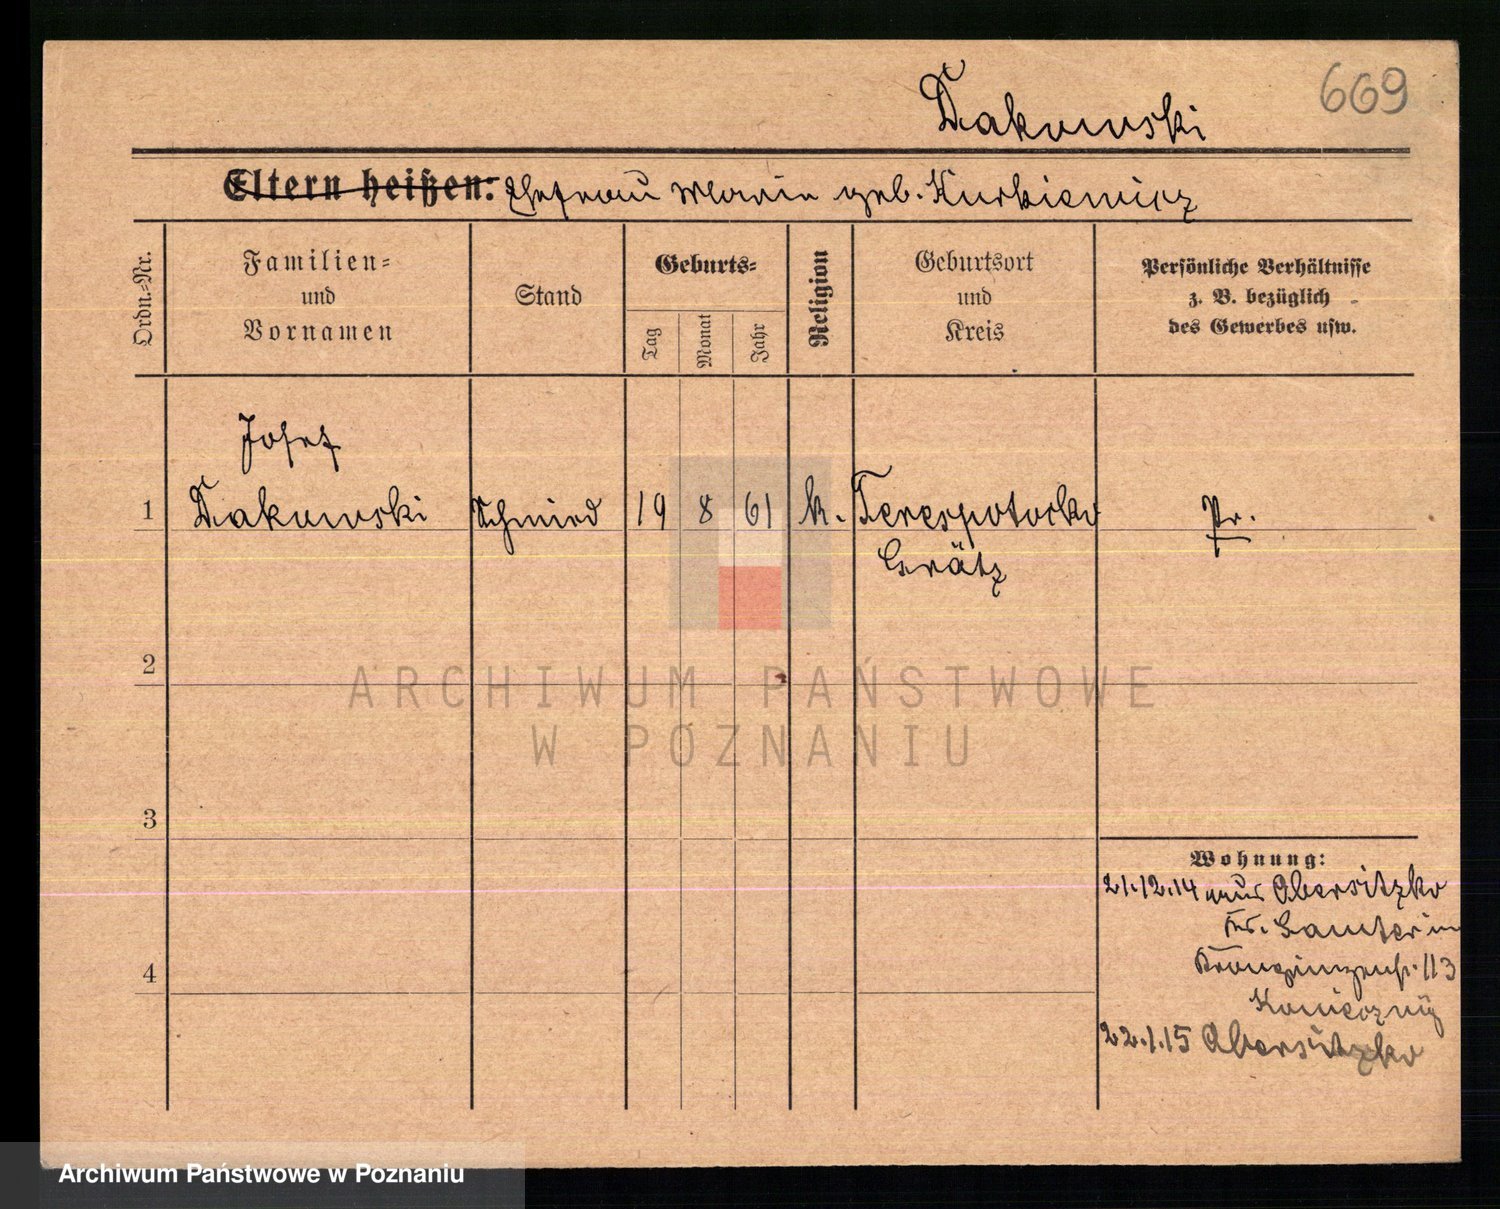 669
Dakowski
Eltern heißen: Ehefrau Marie geb. Kurkiewicz
Ordn.-Nr.
Familien-
und
Vornamen
Stand
Geburts-
Tag
Monat
Jahr
Religion
Geburtsort
und
Kreis
Persönliche Verhältnisse
z. B. bezüglich
des Gewerbes usw.
Josef
1 Dakowski Schmied 19 8 61 k. Terespotocke Pr.
Grätz
2
3
4
Wohnung:
21.12.14 aus Obersitzko
Kr. Samter in
Kronprinzenstr. 113
Konieczny
22.1.15 Obersitzko
ARCHIWUM PAŃSTWOWE
W POZNANIU
Archiwum Państwowe w Poznaniu